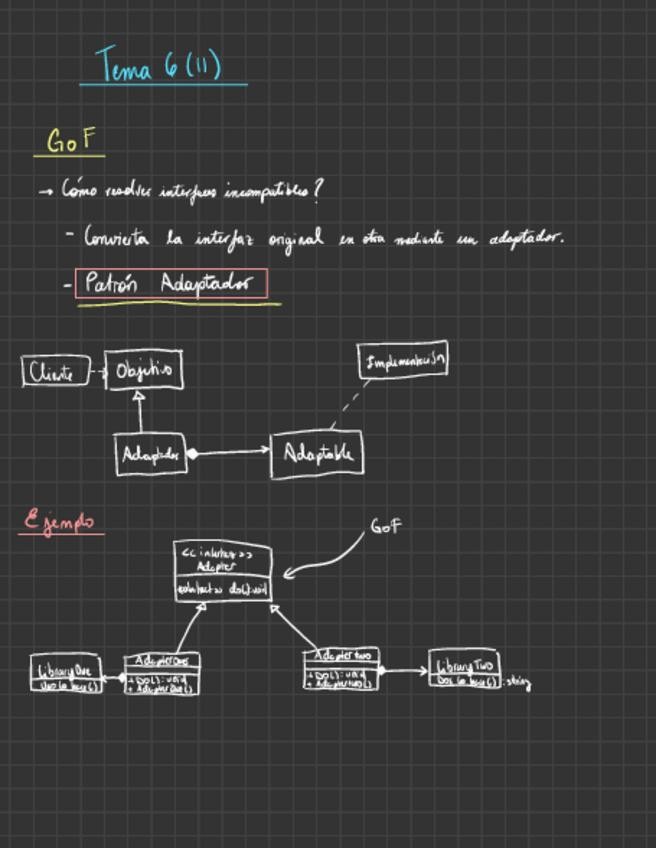 Tema 6 (II)
GoF
→ Cómo resolver interfaces incompatibles?
- Convierta la interfaz original en otra mediante un adaptador.
- Patrón Adaptador
Cliente
Objetivo
Implementación
Adaptador
Adaptable
Ejemplo
GoF
<<interfaz>>
Adapter
do():void
LibraryOne
AdapterOne
+ DO(): void
+ AdapterOne()
Adapter two
+ DO(): void
+ AdapterTwo()
Library Two
: string